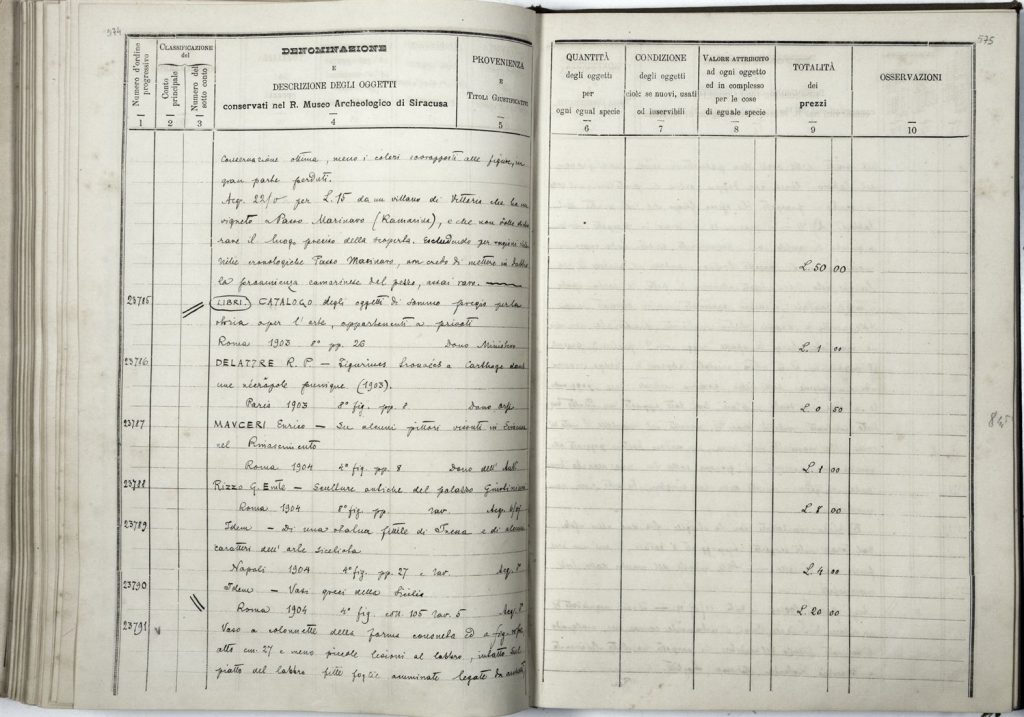 574
Numero d'ordine progressivo
CLASSIFICAZIONE del
Conto principale
Numero del sotto conto
DENOMINAZIONE
E
DESCRIZIONE DEGLI OGGETTI
conservati nel R. Museo Archeologico di Siracusa
PROVENIENZA
E
TITOLI GIUSTIFICATIVI
1 2 3 4 5
Conservazione ottima, meno i colori sovrapposti alle figure, in
gran parte perduti.
Acq. 22/5 per L. 15 da un villano di Vittoria che ha un
vigneto a Passo Marinaro (Kamarina), e che non volle dichia
rare il luogo preciso della scoperta. Escludendo per ragioni
cronologiche Passo Marinaro, non credo di mettere in dubbio
la provenienza camarinese del pezzo, assai raro.
23785 LIBRI. CATALOGO degli oggetti di sommo pregio per la
storia o per l'arte, appartenenti a privati
Roma 1903 8° pp. 26 Dono Ministero
23786 DELATTRE R. P. — Figurines trouvées à Carthage dans
une nécropole punique (1903).
Paris 1903 8° fig. pp. 8 Dono Orsi
23787 MAUCERI Enrico — Su alcuni pittori vissuti in Siracusa
nel Rinascimento
Roma 1904 4° fig. pp. 8 Dono dell'Aut.
23788 RIZZO G. Em[le] — Sculture antiche del palazzo Giustiniani
Roma 1904 8° fig. pp. tav. Acq.
23789 Idem — Di una statua fittile di Inessa e di alcuni
caratteri dell'arte siceliota
Napoli 1904 4° fig. pp. 27 e tav. Acq.
23790 Idem — Vasi greci della Sicilia
Roma 1904 4° fig. col. 105 tav. 5 Acq.
23791 Vaso a colonnette della forma consueta ed a fig. rosse
alto cm. 27 e meno piccole lesioni al labbro, intatto. Sul
piatto del labbro fitte foglie acuminate legate da
575
QUANTITÀ
degli oggetti
per
ogni egual specie
6
CONDIZIONE
degli oggetti
cioè: se nuovi, usati
od inservibili
7
VALORE ATTRIBUITO
ad ogni oggetto
ed in complesso
per le cose
di eguale specie
8
TOTALITÀ
dei
prezzi
9
OSSERVAZIONI
10
L. 50 00
L. 1 00
L. 0 50
L. 1 00
L. 8 00
L. 4 00
L. 20 00